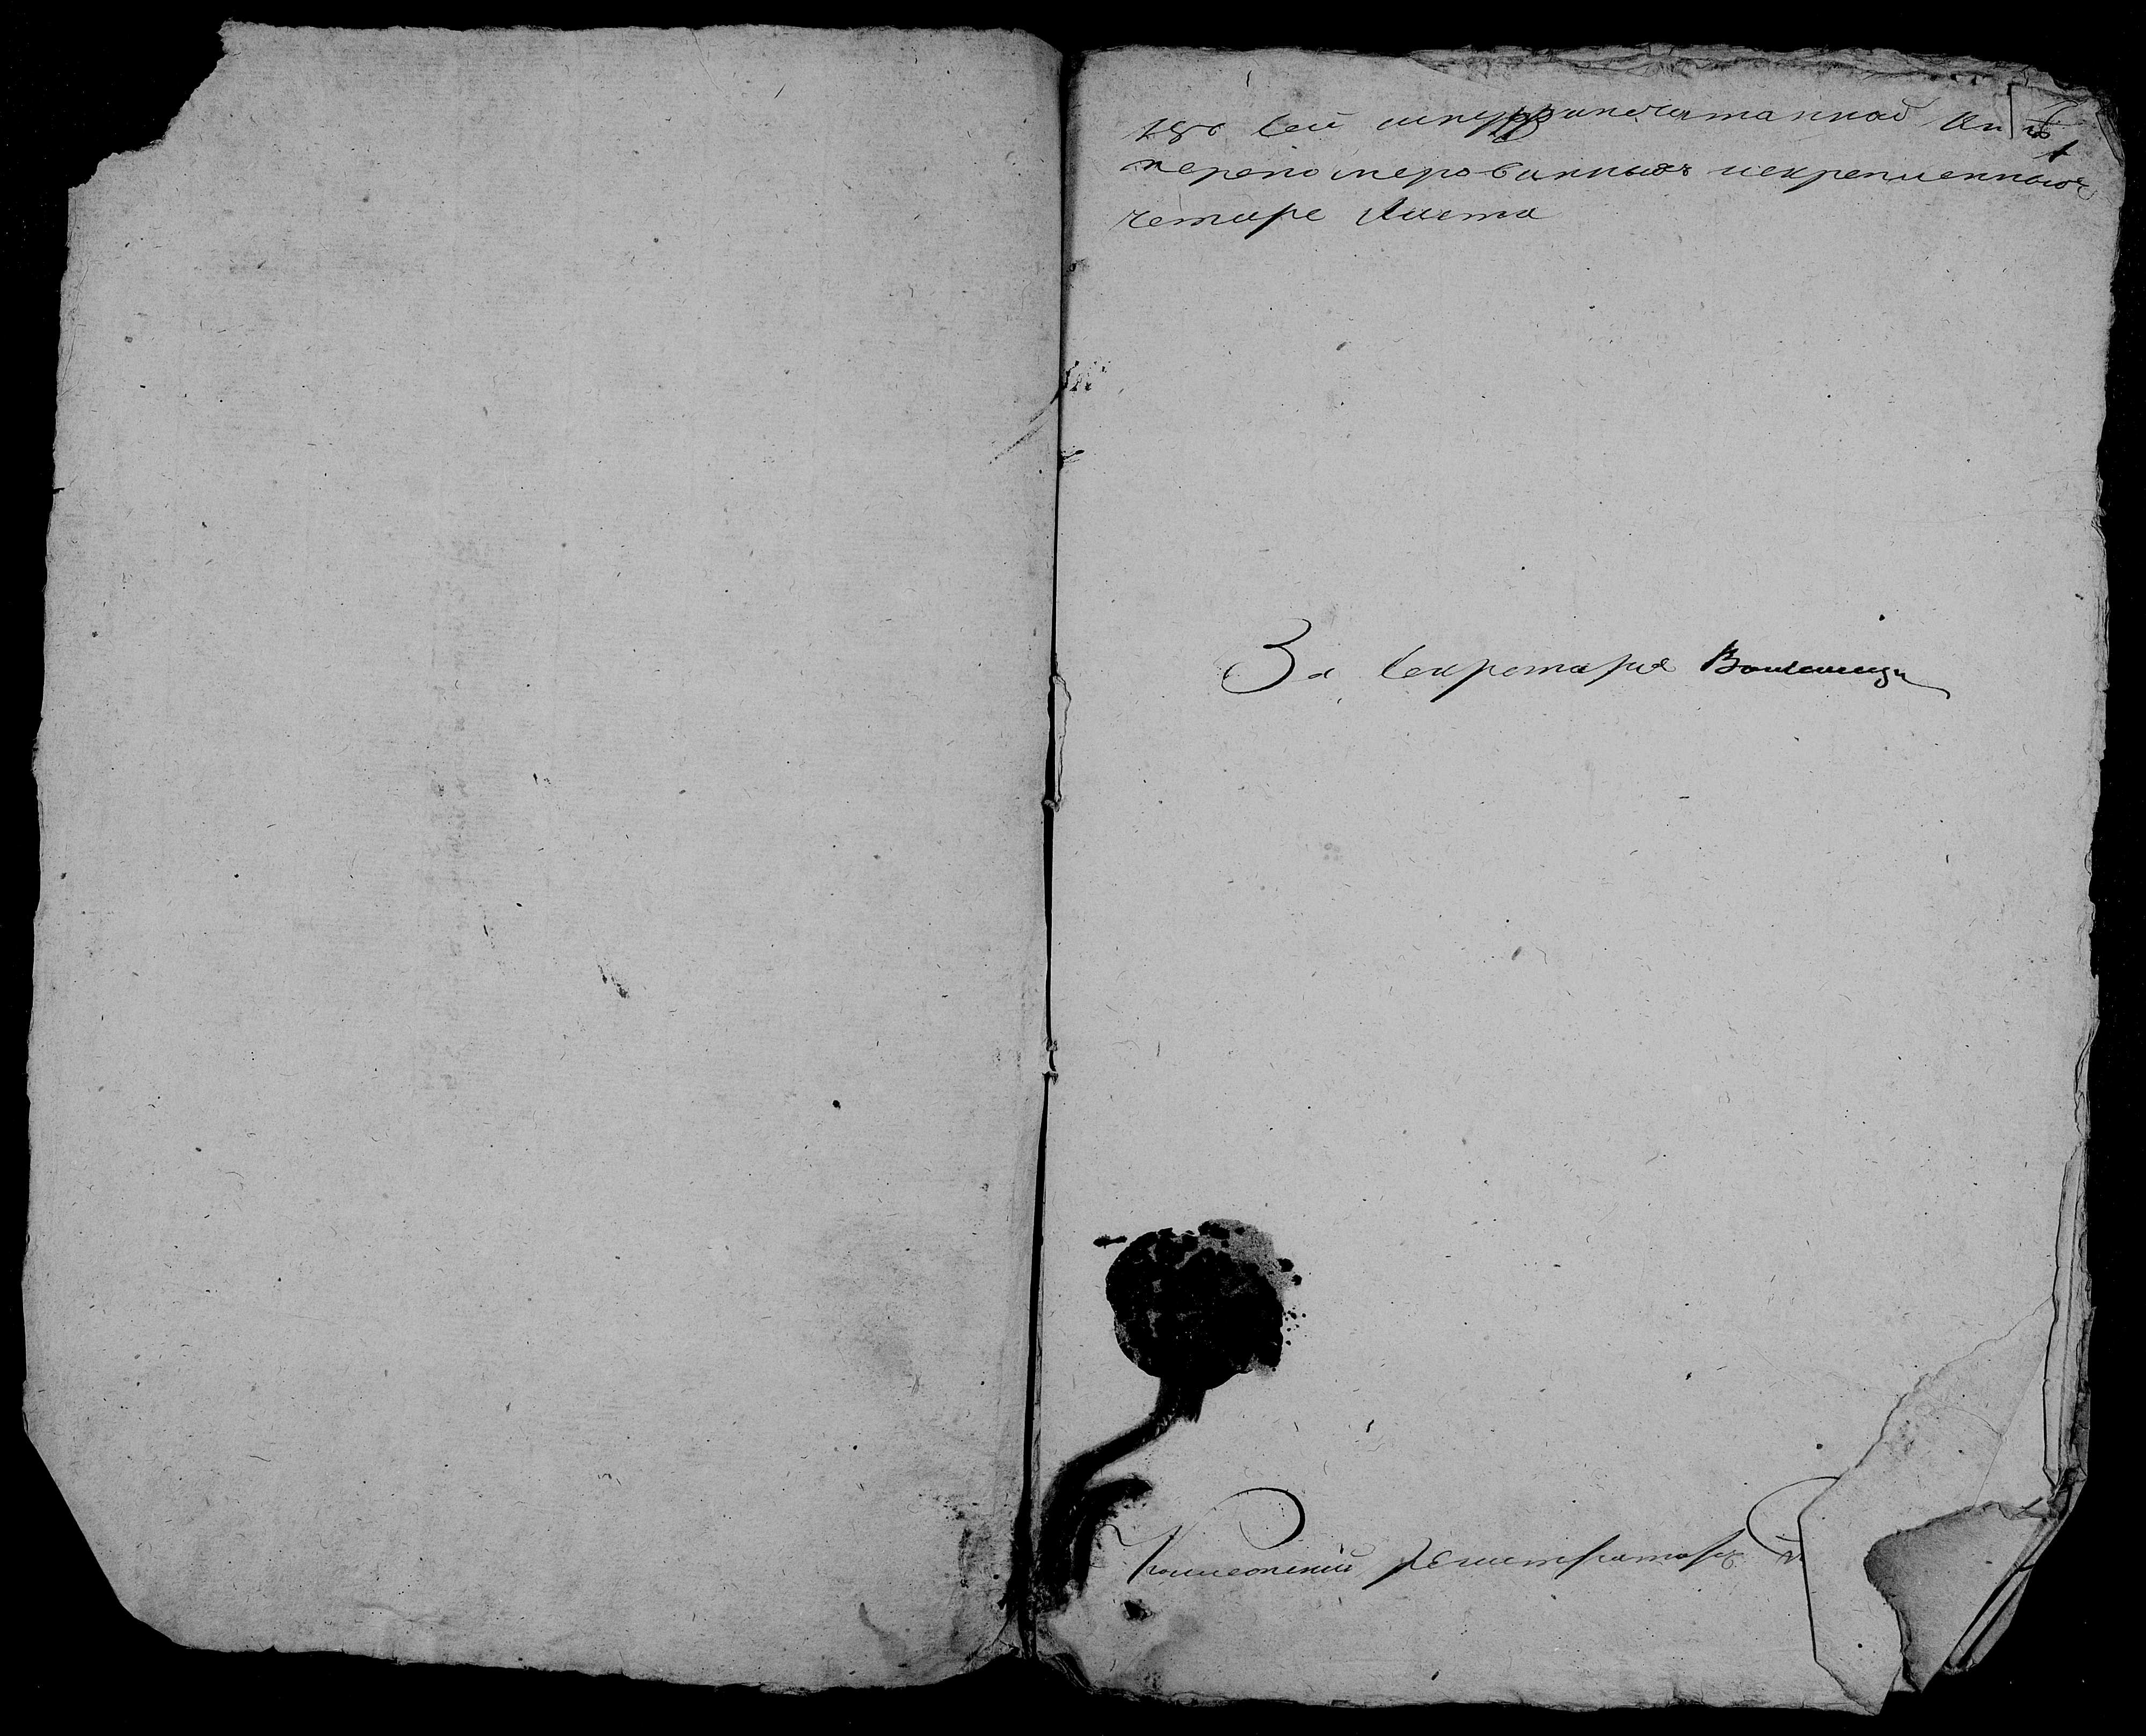 Въ сей шнурозапечатанной книге
перенумерованныхъ искрепленныхъ
четыре листа
За Секретаря
Коллежский регистраторъ